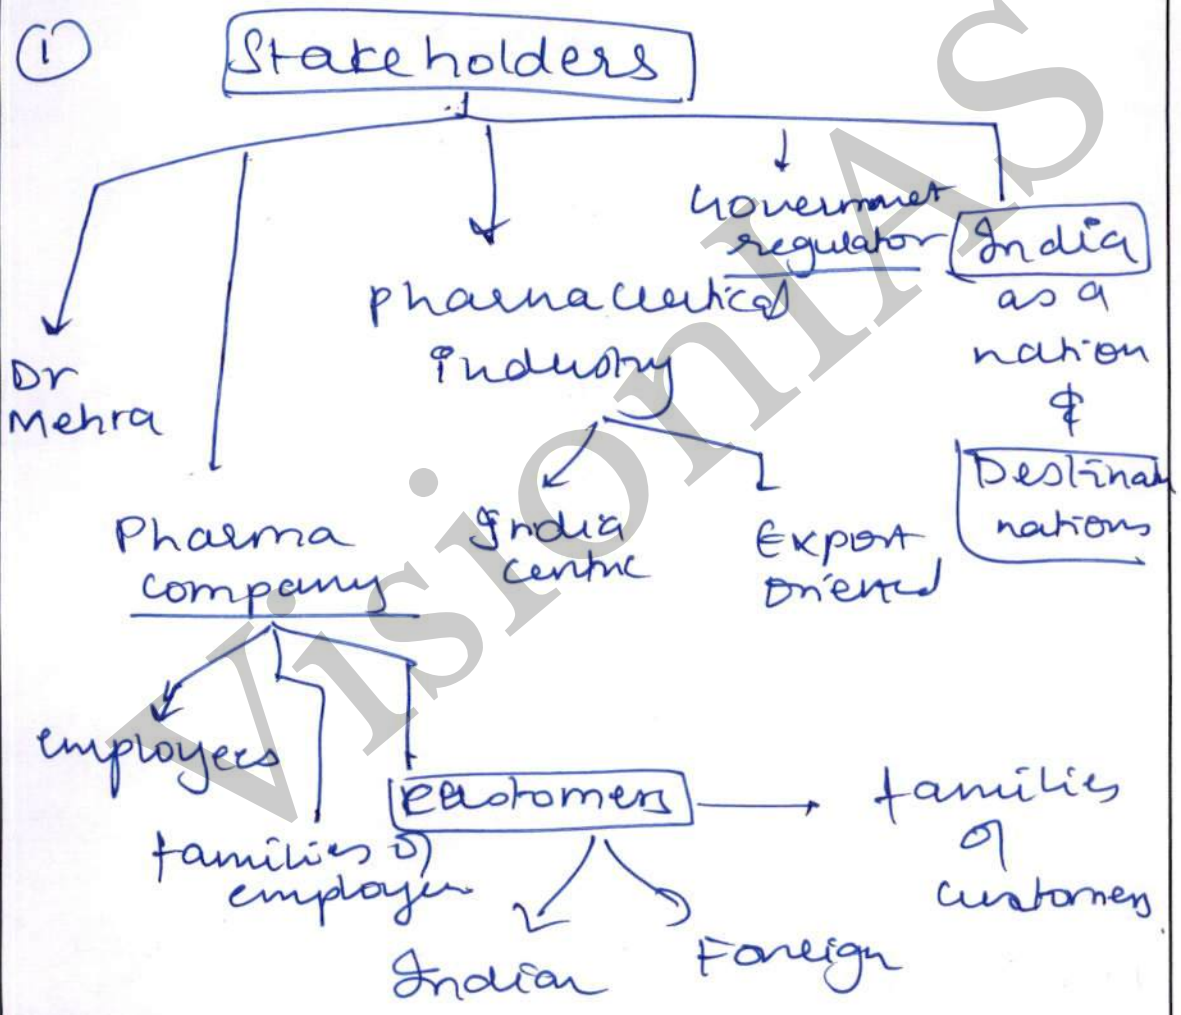 1
Stakeholders
Dr
Mehra
Pharma
company
pharmaceutical
industry
Government
regulator
India
as a
nation
&
nations
India
centric
Export
oriented
employees
families of
customers
families
of
customers
Indian
Foreign
VisionIAS